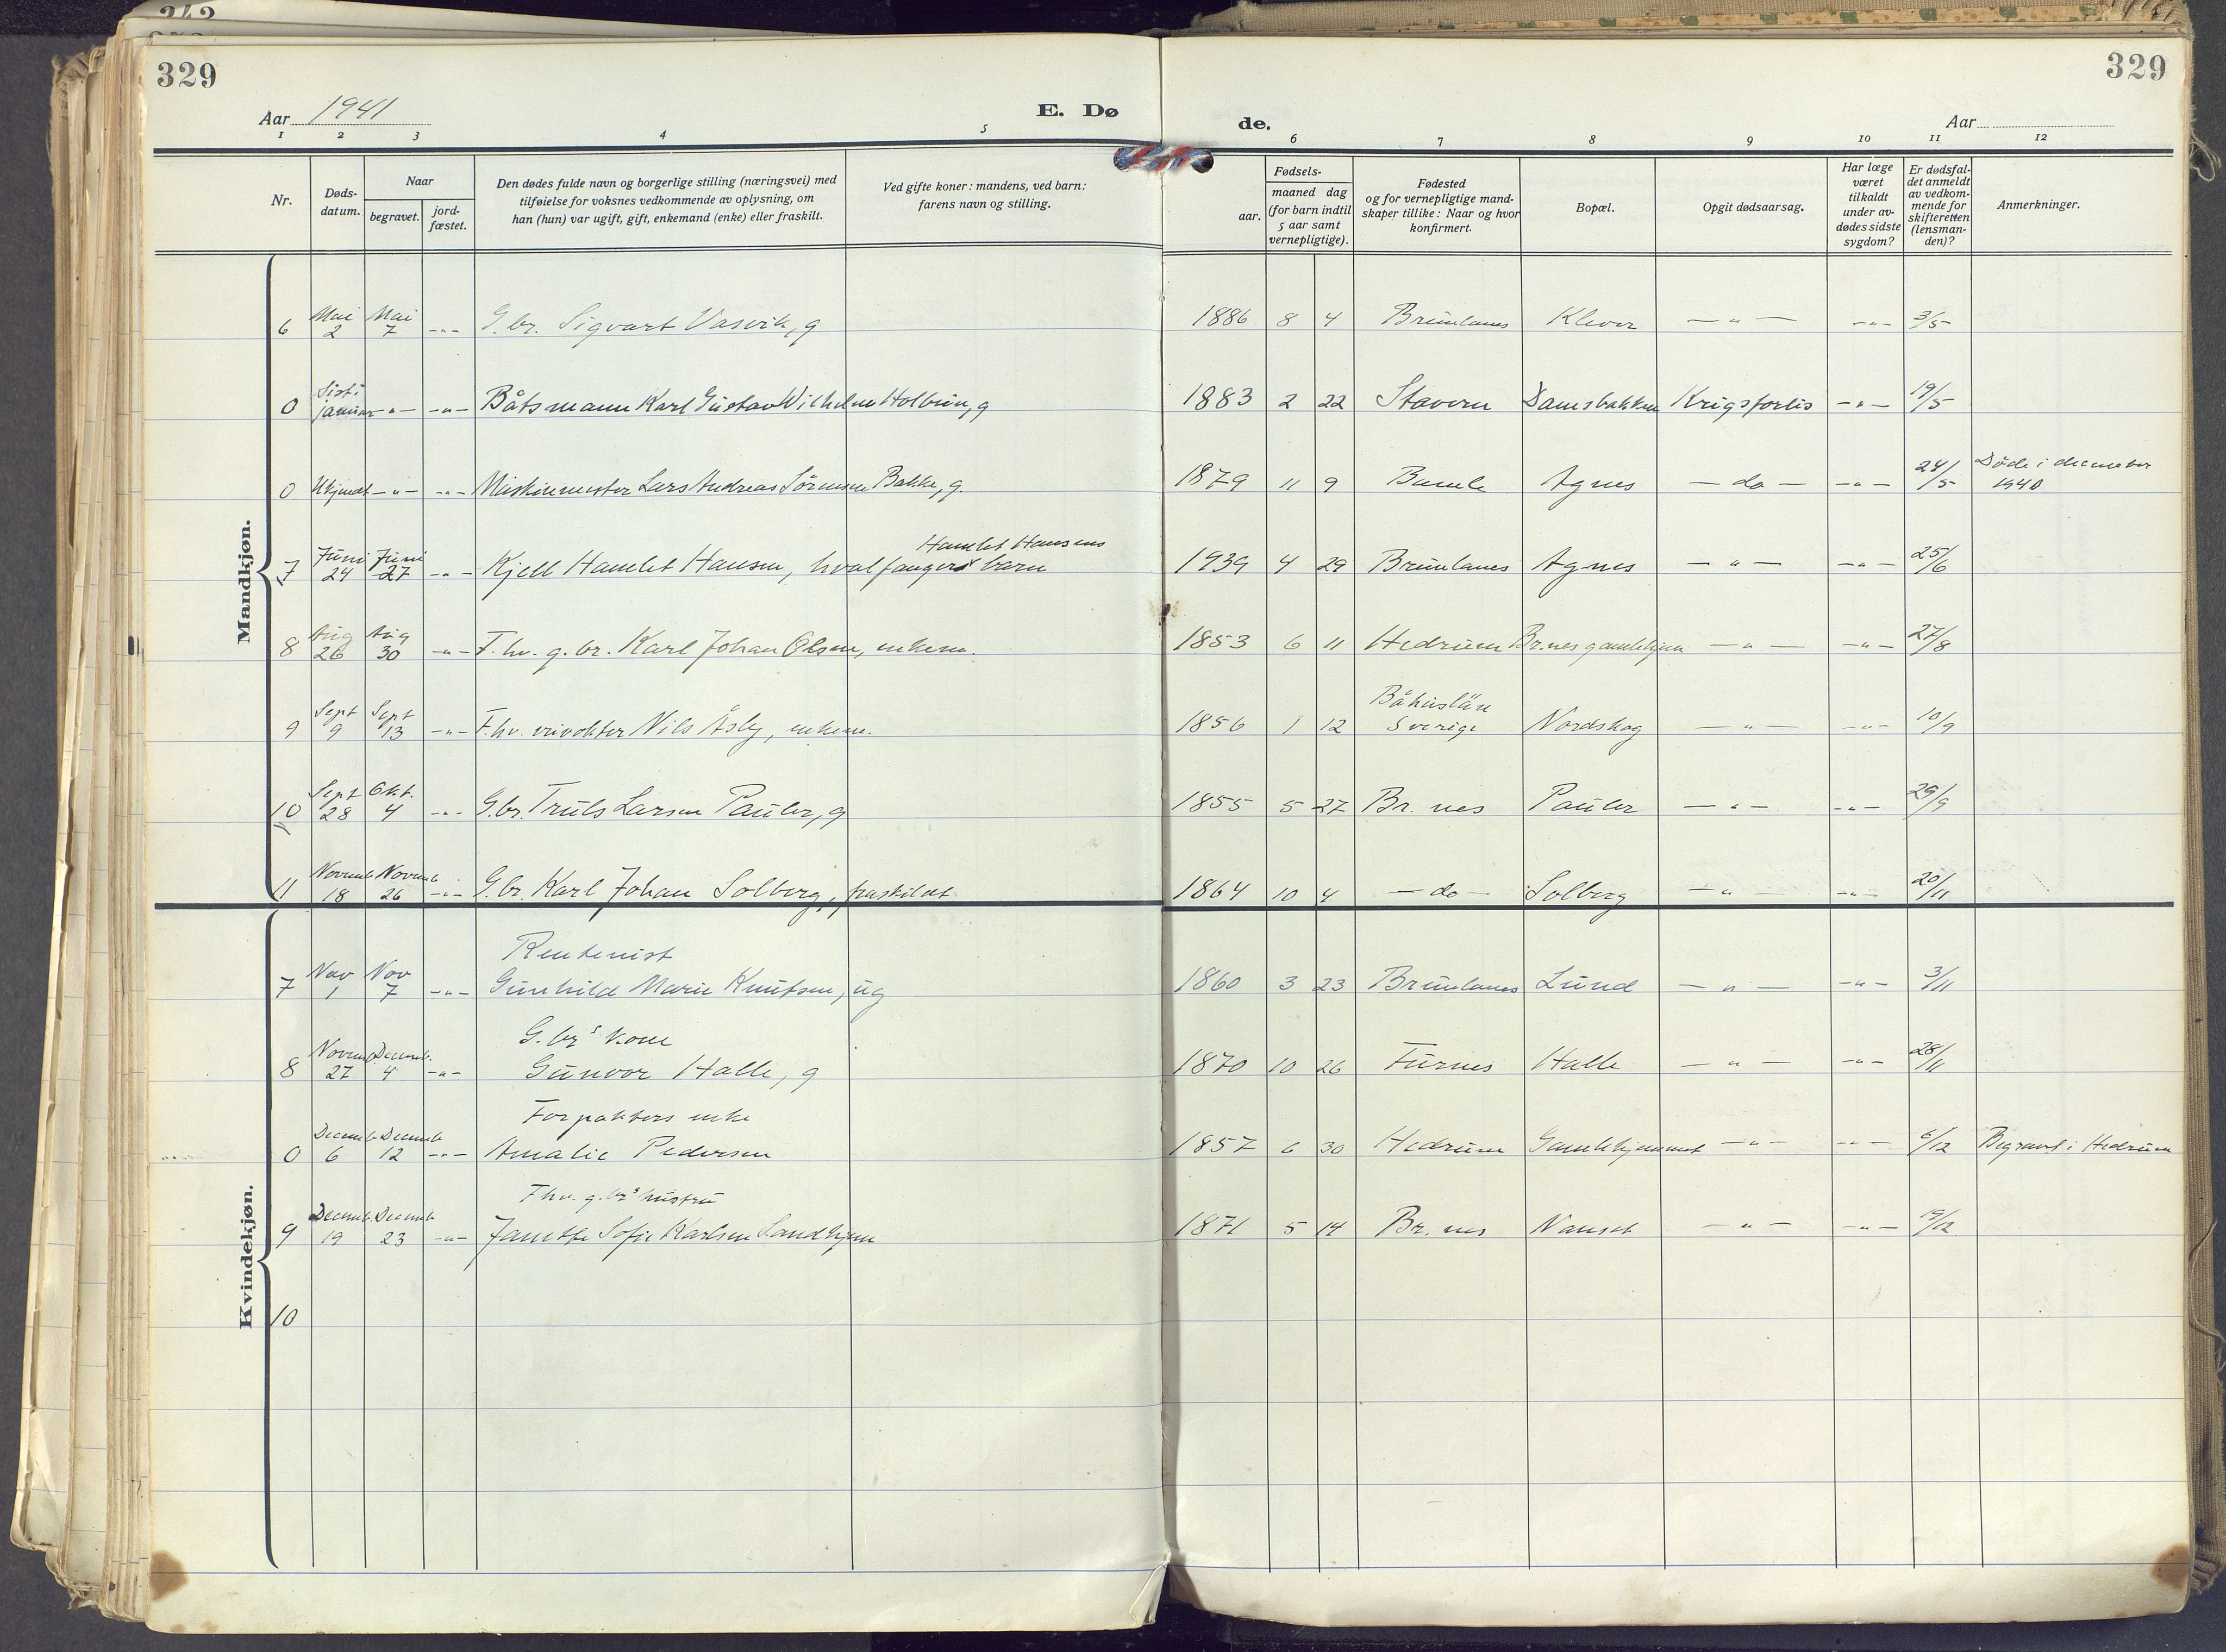 342
329
329
Aar 1941
E. Dø
de.
Aar
1 2 3 4 5 6 7 8 9 10 11 12
Nr.
Døds-
datum.
Naar
begravet.
jord-
fæstet.
Den dødes fulde navn og borgerlige stilling (næringsvei) med
tilføielse for voksnes vedkommende av oplysning, om
han (hun) var ugift, gift, enkemand (enke) eller fraskilt.
Ved gifte koner: mandens, ved barn:
farens navn og stilling.
Fødsels-
aar.
maaned dag
(for barn indtil
5 aar samt
vernepligtige).
Fødested
og for vernepligtige mand-
skaper tillike: Naar og hvor
konfirmert.
Bopæl.
Opgit dødsaarsag.
Har læge
været
tilkaldt
under av-
dødes sidste
sygdom?
Er dødsfal-
det anmeldt
av vedkom-
mende for
skifteretten
(lensman-
den)?
Anmerkninger.
Mandkjøn.
Mai Mai
6 2 7 -"- G.br. Sigvart Vasvik, g 1886 8 4 Brunlanes Klever - " - -"- 3/5
Sist i
0 januar -"- -"- Båtsmann Karl Gustav Wilhelm Holbun, g 1883 2 22 Stavern Damsbakken Krigsforlis -"- 19/5
0 Ukjendt -"- -"- Maskinmester Lars Andreas Sörensen Bakke, g. 1879 11 9 Bamle Agnes - do - -"- 24/5 Döde i december
1940
Juni Juni Hamlet Hansens
7 24 27 -"- Kjell Hamlet Hansen, hvalfangers barn 1939 4 29 Brunlanes Agnes - " - -"- 25/6
Aug Aug
8 26 30 -"- F. hv. g. br. Karl Johan Olsen, enkem. 1853 6 11 Hedrum Br.nes gamlehjem - " - -"- 27/8
Sept Sept Båhuslän
9 9 13 -"- F. hv. Nils Åsly, enkem. 1856 1 12 Sverige Nordskog - " - -"- 10/9
Sept Okt.
10 28 4 -"- G.br. Truls Larsen Pauler, g 1855 5 27 Br. nes Pauler - " - -"- 29/9
Novemb Novemb
11 18 26 -"- G.br. Karl Johan Solberg, fraskilt 1864 10 4 - do - Solberg - " - -"- 20/11
Kvindekjøn.
Rentenist
Nov Nov
7 1 7 -"- Gunhild Marie Knutsen, ug 1860 3 23 Brunlanes Lund - " - -"- 3/11
G. br.s kone
Novemb Decemb.
8 27 4 -"- Gunvor Halle, g 1870 10 26 Furnes Halle - " - -"- 28/11
Forpakters enke
Decemb Decemb
0 6 12 -"- Amalie Pedersen 1857 6 30 Hedrum Gamlehjemmet -"- -"- 6/12 Begravet i Hedrum
F hv. g. br.s hustru
Decemb. Decemb
9 19 23 -"- Janette Sofie Karlsen Sandhjem 1871 5 14 Br. nes Nanset - " - -"- 19/12
10